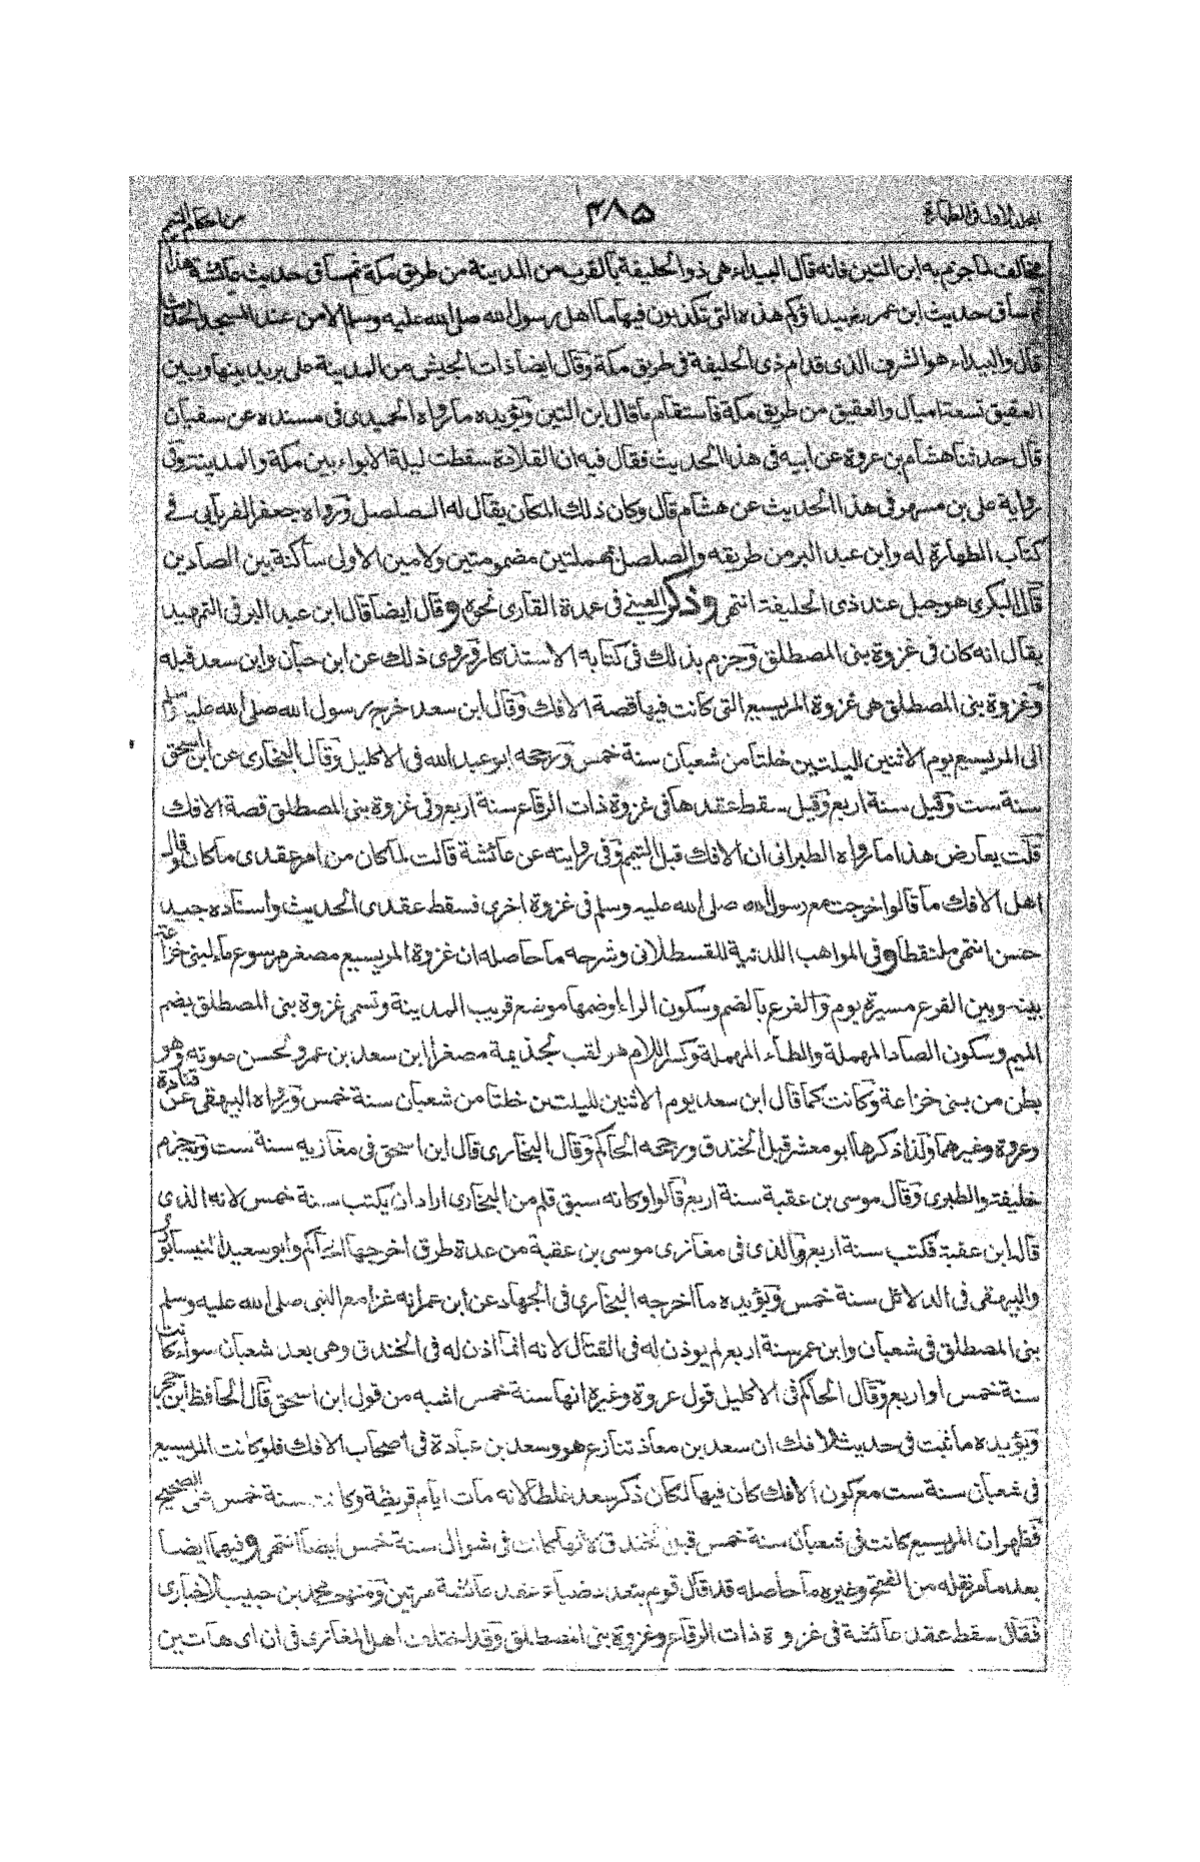 المجلد الاول فى الطهارة
٢٨٥
من احكام التيمم
مخالف لما جزم به ابن التين فانه قال البيداء هى ذو الحليفة بالقرب من المدينة من طريق مكة ثم ساق حديث عائشة هذا
ثم ساق حديث ابن عمر بيداؤكم هذه التى تكذبون فيها ما اهل رسول الله صلى الله عليه وسلم الا من عند المسجد الحديث
قال والبيداء هو الشرف الذى قدام ذى الحليفة فى طريق مكة وقال ايضا ذات الجيش من المدينة على بريد بينها وبين
العقيق تسعة اميال والعقيق من طريق مكة فاستقام ما قال ابن التين ويؤيده ما رواه الحميدى فى مسنده عن سفيان
قال حدثنا هشام بن عروة عن ابيه فى هذا الحديث فقال فيه ان القلادة سقطت ليلة الابواء بين مكة والمدينة وفى
رواية على بن مسهر فى هذا الحديث عن هشام قال وكان ذلك المكان يقال له الصلصل ورواه جعفر الفريابى فى
كتاب الطهارة له وابن عبد البر من طريقه والصلصل بمهملتين مضمومتين ولامين الاولى ساكنة بين الصادين
قال البكرى هو جبل عند ذى الحليفة انتهى وذكر العينى فى عمدة القارى نحوه وقال ايضا قال ابن عبد البر فى التمهيد
يقال انه كان فى غزوة بنى المصطلق وجزم بذلك فى كتابه الاستذكار وروى ذلك عن ابن حبان وابن سعد قبله
وغزوة بنى المصطلق هى غزوة المريسيع التى كانت فيها قصة الافك وقال ابن سعد خرج رسول الله صلى الله عليه وسلم
الى المريسيع يوم الاثنين لليلتين خلتا من شعبان سنة خمس ورجحه ابو عبد الله فى الاكليل وقال البخارى عن ابن اسحق
سنة ست وقيل سنة اربع وقيل سقط عقدها فى غزوة ذات الرقاع سنة اربع وفى غزوة بنى المصطلق قصة الافك
قلت يعارض هذا ما رواه الطبرانى ان الافك قبل التيمم وفى روايته عن عائشة قالت لما كان من امر عقدى ما كان وقال
اهل الافك ما قالوا خرجت مع رسول الله صلى الله عليه وسلم فى غزوة اخرى فسقط عقدى الحديث واسناده جيد
حسن انتهى ملتقطا وفى المواهب اللدنية للقسطلانى وشرحه ما حاصله ان غزوة المريسيع مصغر مرسوع ماء لبنى خزاعة
بينه وبين الفرع مسيرة يوم والفرع بالضم وسكون الراء وضمها موضع قريب المدينة وتسمى غزوة بنى المصطلق بضم
الميم وسكون الصاد المهملة والطاء المهملة وكسر اللام هو لقب لجذيمة مصغرا ابن سعد بن عمرو لحسن صوته وهو
بطن من بنى خزاعة وكانت كما قال ابن سعد يوم الاثنين لليلتين خلتا من شعبان سنة خمس ورواه البيهقى عن قتادة
وعروة وغيرهما ولذا ذكرها ابو معشر قبل الخندق ورجحه الحاكم وقال البخارى قال ابن اسحق فى مغازيه سنة ست وبه جزم
خليفة والطبرى وقال موسى بن عقبة سنة اربع قالوا وكانه سبق قلم من البخارى اراد ان يكتب سنة خمس لانه الذى
قاله ابن عقبة فكتب سنة اربع والذى فى مغازى موسى بن عقبة من عدة طرق اخرجها الحاكم وابو سعيد النيسابورى
والبيهقى فى الدلائل سنة خمس ويؤيده ما اخرجه البخارى فى الجهاد عن ابن عمر انه غزا مع النبى صلى الله عليه وسلم
بنى المصطلق فى شعبان وابن عمر سنة اربع لم يوذن له فى القتال لانه انما اذن له فى الخندق وهى بعد شعبان سواء كانت
سنة خمس او اربع وقال الحاكم فى الاكليل قول عروة وغيره انها سنة خمس اشبه من قول ابن اسحق قال الحافظ ابن حجر
ويؤيده ما ثبت فى حديث الافك ان سعد بن معاذ تنازع هو وسعد بن عبادة فى اصحاب الافك فلو كانت المريسيع
فى شعبان سنة ست مع كون الافك كان فيها لكان ذكر سعد غلطا لانه مات ايام قريظة وكانت سنة خمس على الصحيح
فظهر ان المريسيع كانت فى شعبان سنة خمس قبل الخندق لانها كانت فى شوال سنة خمس ايضا انتهى وفيها ايضا
بعد ما مر نقله من الفتح وغيره ما حاصله قد قال قوم بتعدد ضياع عقد عائشة مرتين ومنهم محمد بن حبيب الاخبارى
فقال سقط عقد عائشة فى غزوة ذات الرقاع وغزوة بنى المصطلق وقد اختلف اهل المغازى فى ان اى هاتين